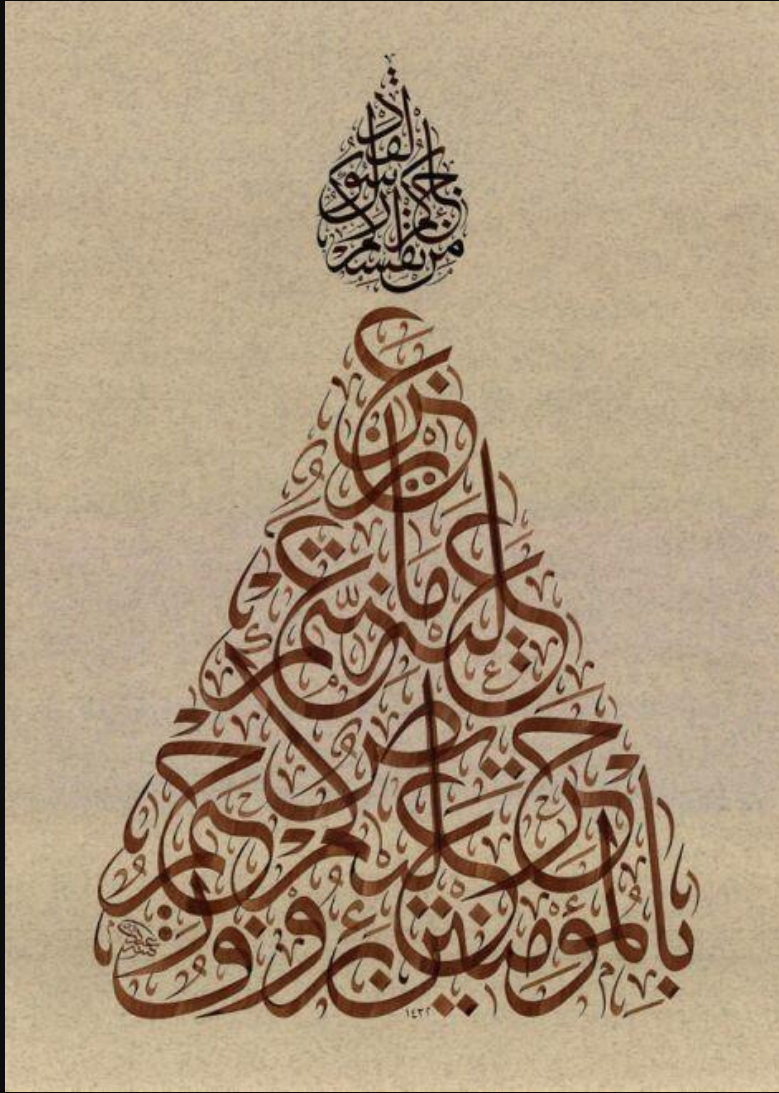 لقد
جاءكم رسول
من أنفسكم
عزيز
عليه ما عنتم
حريص عليكم
بالمؤمنين رءوف رحيم
١٤٣٢